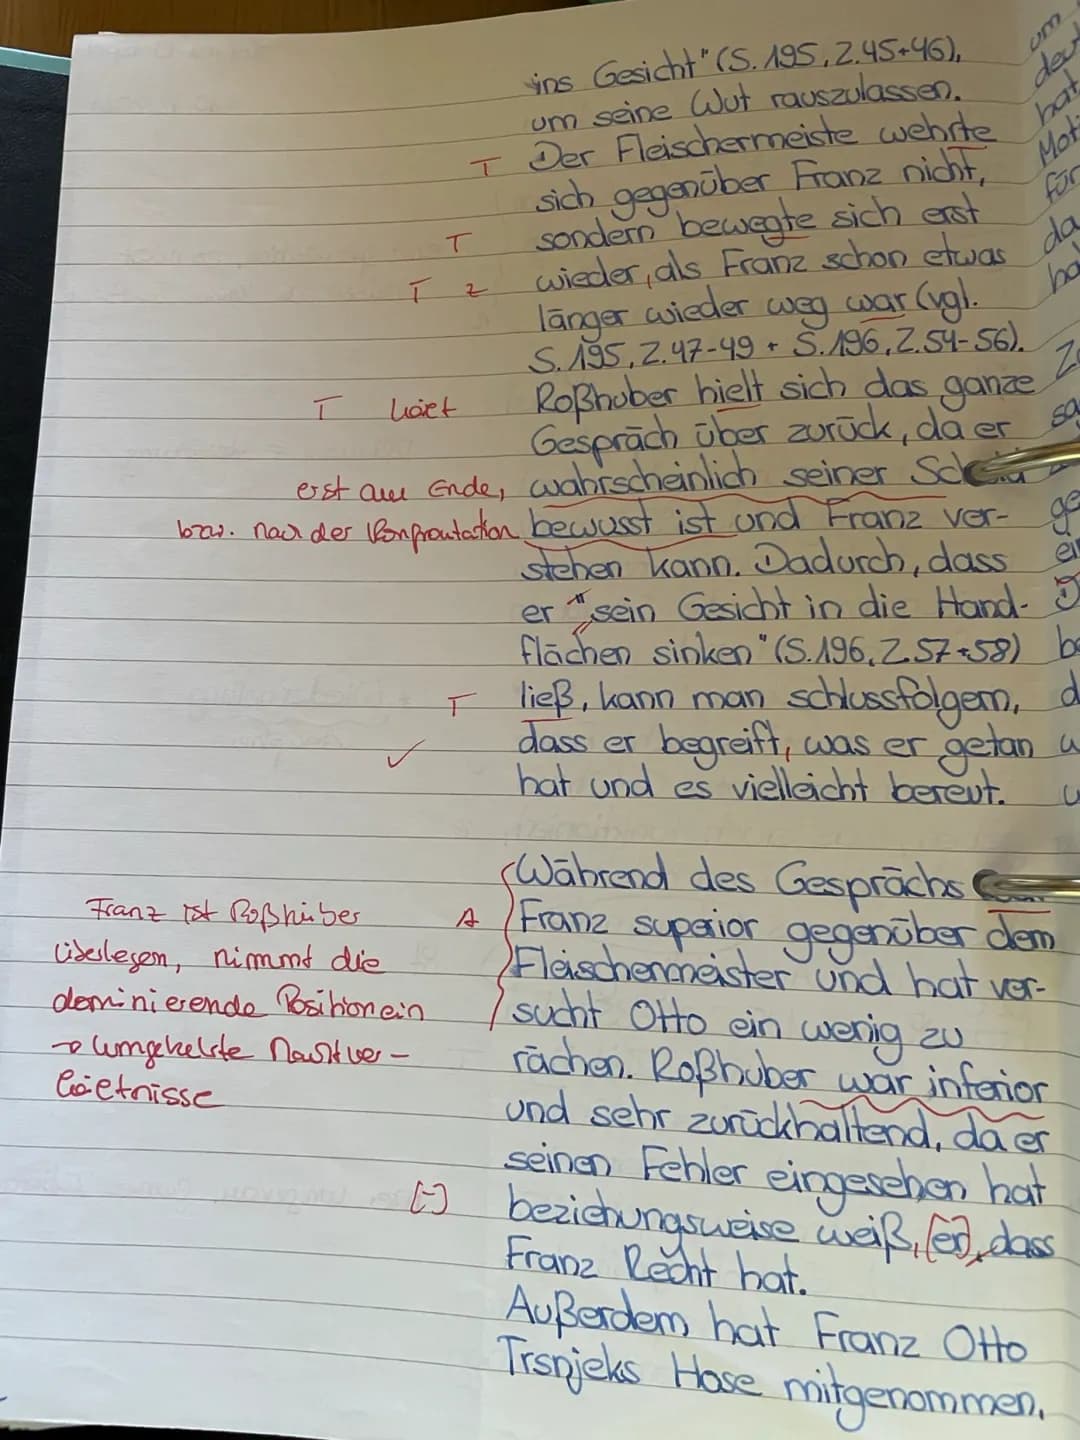 ins Gesicht" (S. 195, Z. 45+46),
um seine Wut rauszulassen.
T Der Fleischermeiste wehrte
sich gegenüber Franz nicht,
T sondern bewegte sich erst
T Z wieder, als Franz schon etwas
länger wieder weg war (vgl.
S. 195, Z. 47-49 + S. 196, Z. 54-56).
T hält Roßhuber hielt sich das ganze
Gespräch über zurück, da er
erst am Ende, wahrscheinlich seiner
bzw. nach der Konfrontation bewusst ist und Franz ver-
stehen kann. Dadurch, dass
er "sein Gesicht in die Hand-
flächen sinken" (S. 196, Z. 57+58)
T ließ, kann man schlussfolgern,
dass er begreift, was er getan
✓ hat und es vielleicht bereut.
Während des Gesprächs
Franz ist Roßhuber A Franz superior gegenüber dem
überlegen, nimmt die Fleischermeister und hat ver-
dominierende Position ein sucht Otto ein wenig zu
→ umgekehrte Machtver- rächen. Roßhuber war inferior
hältnisse und sehr zurückhaltend, da er
seinen Fehler eingesehen hat
[-] beziehungsweise weiß, [er], dass
Franz Recht hat.
Außerdem hat Franz Otto
Trsnjeks Hose mitgenommen,
um
hat
für
da